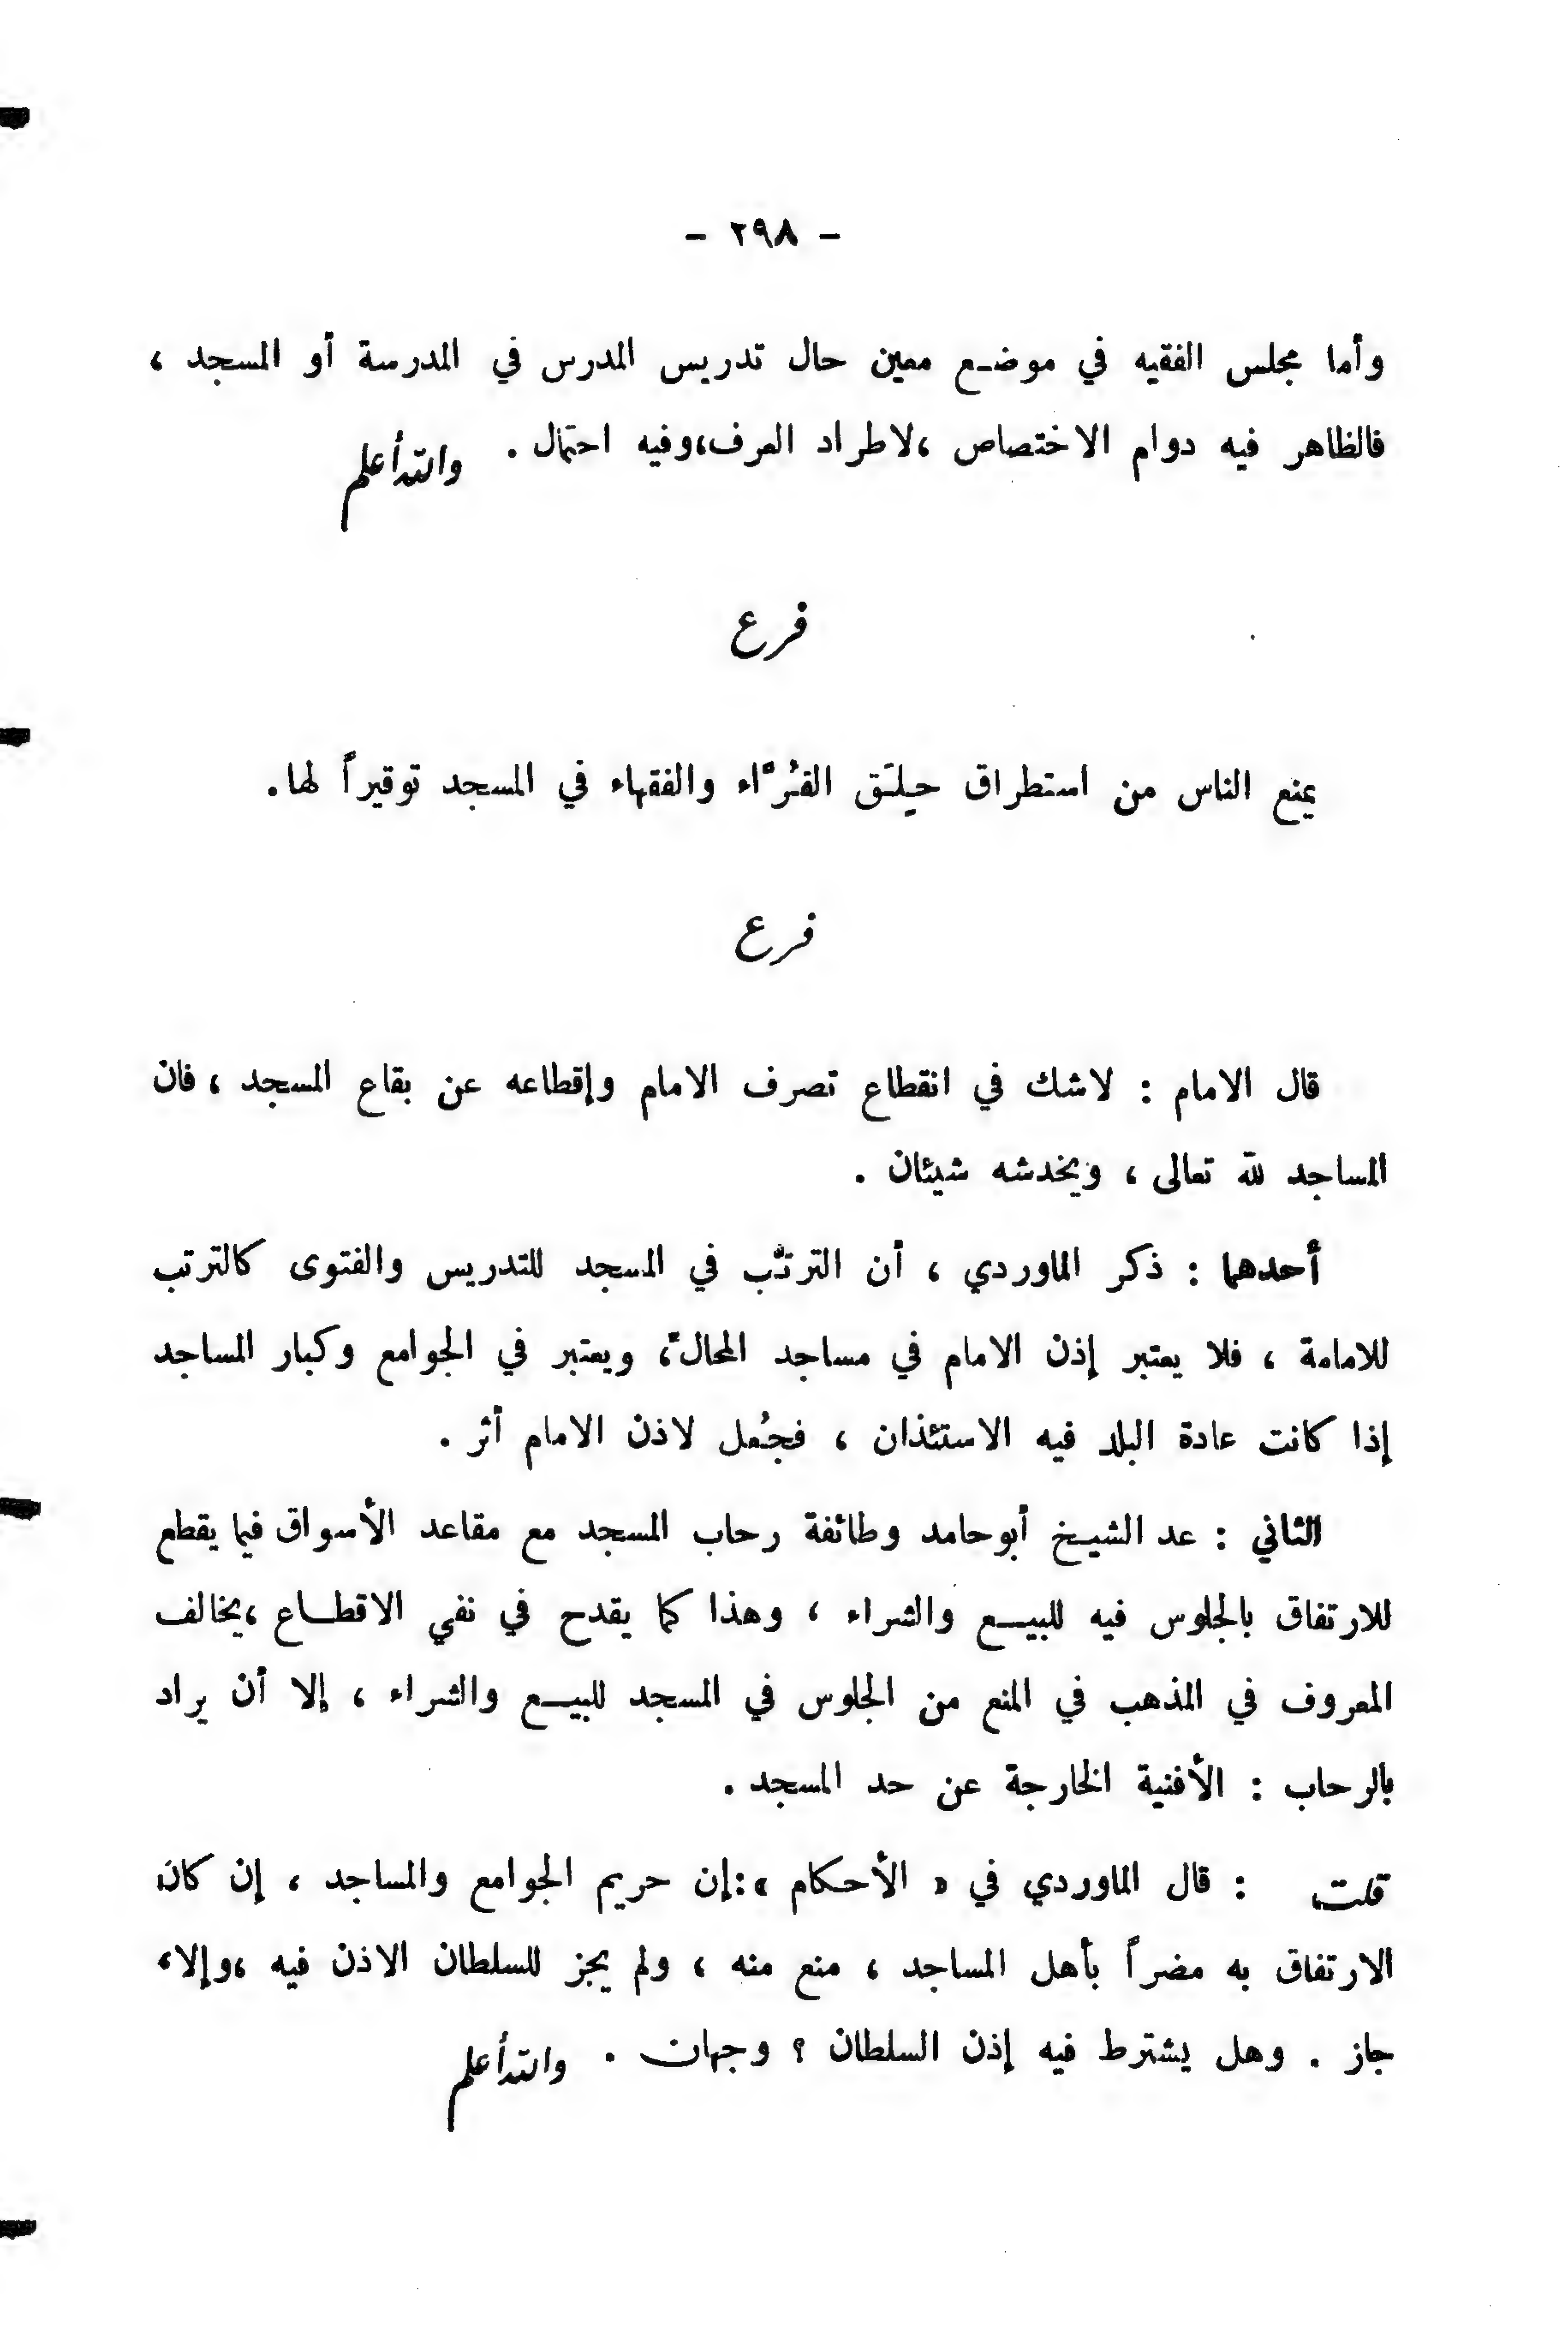 - ٢٩٨ -
وأما مجلس الفقيه في موضع معين حال تدريس المدرس في المدرسة أو المسجد ،
فالظاهر فيه دوام الاختصاص ،لاطراد العرف،وفيه احتمال . والله أعلم
فرع
يمنع الناس من استطراق حِلَق القُرَّاء والفقهاء في المسجد توقيراً لها.
فرع
قال الامام : لاشك في انقطاع تصرف الامام وإقطاعه عن بقاع المسجد ، فان
المساجد لله تعالى ، ويخدشه شيئان .
أحدهما : ذكر الماوردي ، أن الترتُّب في المسجد للتدريس والفتوى كالترتب
للامامة ، فلا يعتبر إذن الامام في مساجد المحالّ، ويعتبر في الجوامع وكبار المساجد
إذا كانت عادة البلد فيه الاستئذان ، فجُعل لاذن الامام أثر .
الثاني : عد الشيخ أبوحامد وطائفة رحاب المسجد مع مقاعد الأسواق فيما يقطع
للارتفاق بالجلوس فيه للبيع والشراء ، وهذا كما يقدح في نفي الاقطاع ،يخالف
المعروف في المذهب في المنع من الجلوس في المسجد للبيع والشراء ، إلا أن يراد
بالرحاب : الأفنية الخارجة عن حد المسجد .
قلت : قال الماوردي في « الأحكام »:إن حريم الجوامع والمساجد ، إن كان
الارتفاق به مضراً بأهل المساجد ، منع منه ، ولم يجز للسلطان الاذن فيه ،وإلا،
جاز . وهل يشترط فيه إذن السلطان ؟ وجهان . والله أعلم